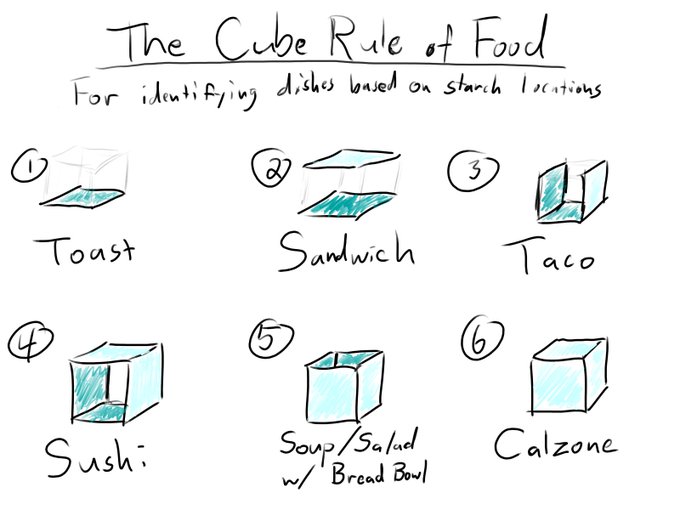 The Cube Rule of Food
For identifying dishes based on starch locations
1 Toast
2 Sandwich
3 Taco
4 Sushi
5 Soup/Salad
w/ Bread Bowl
6 Calzone